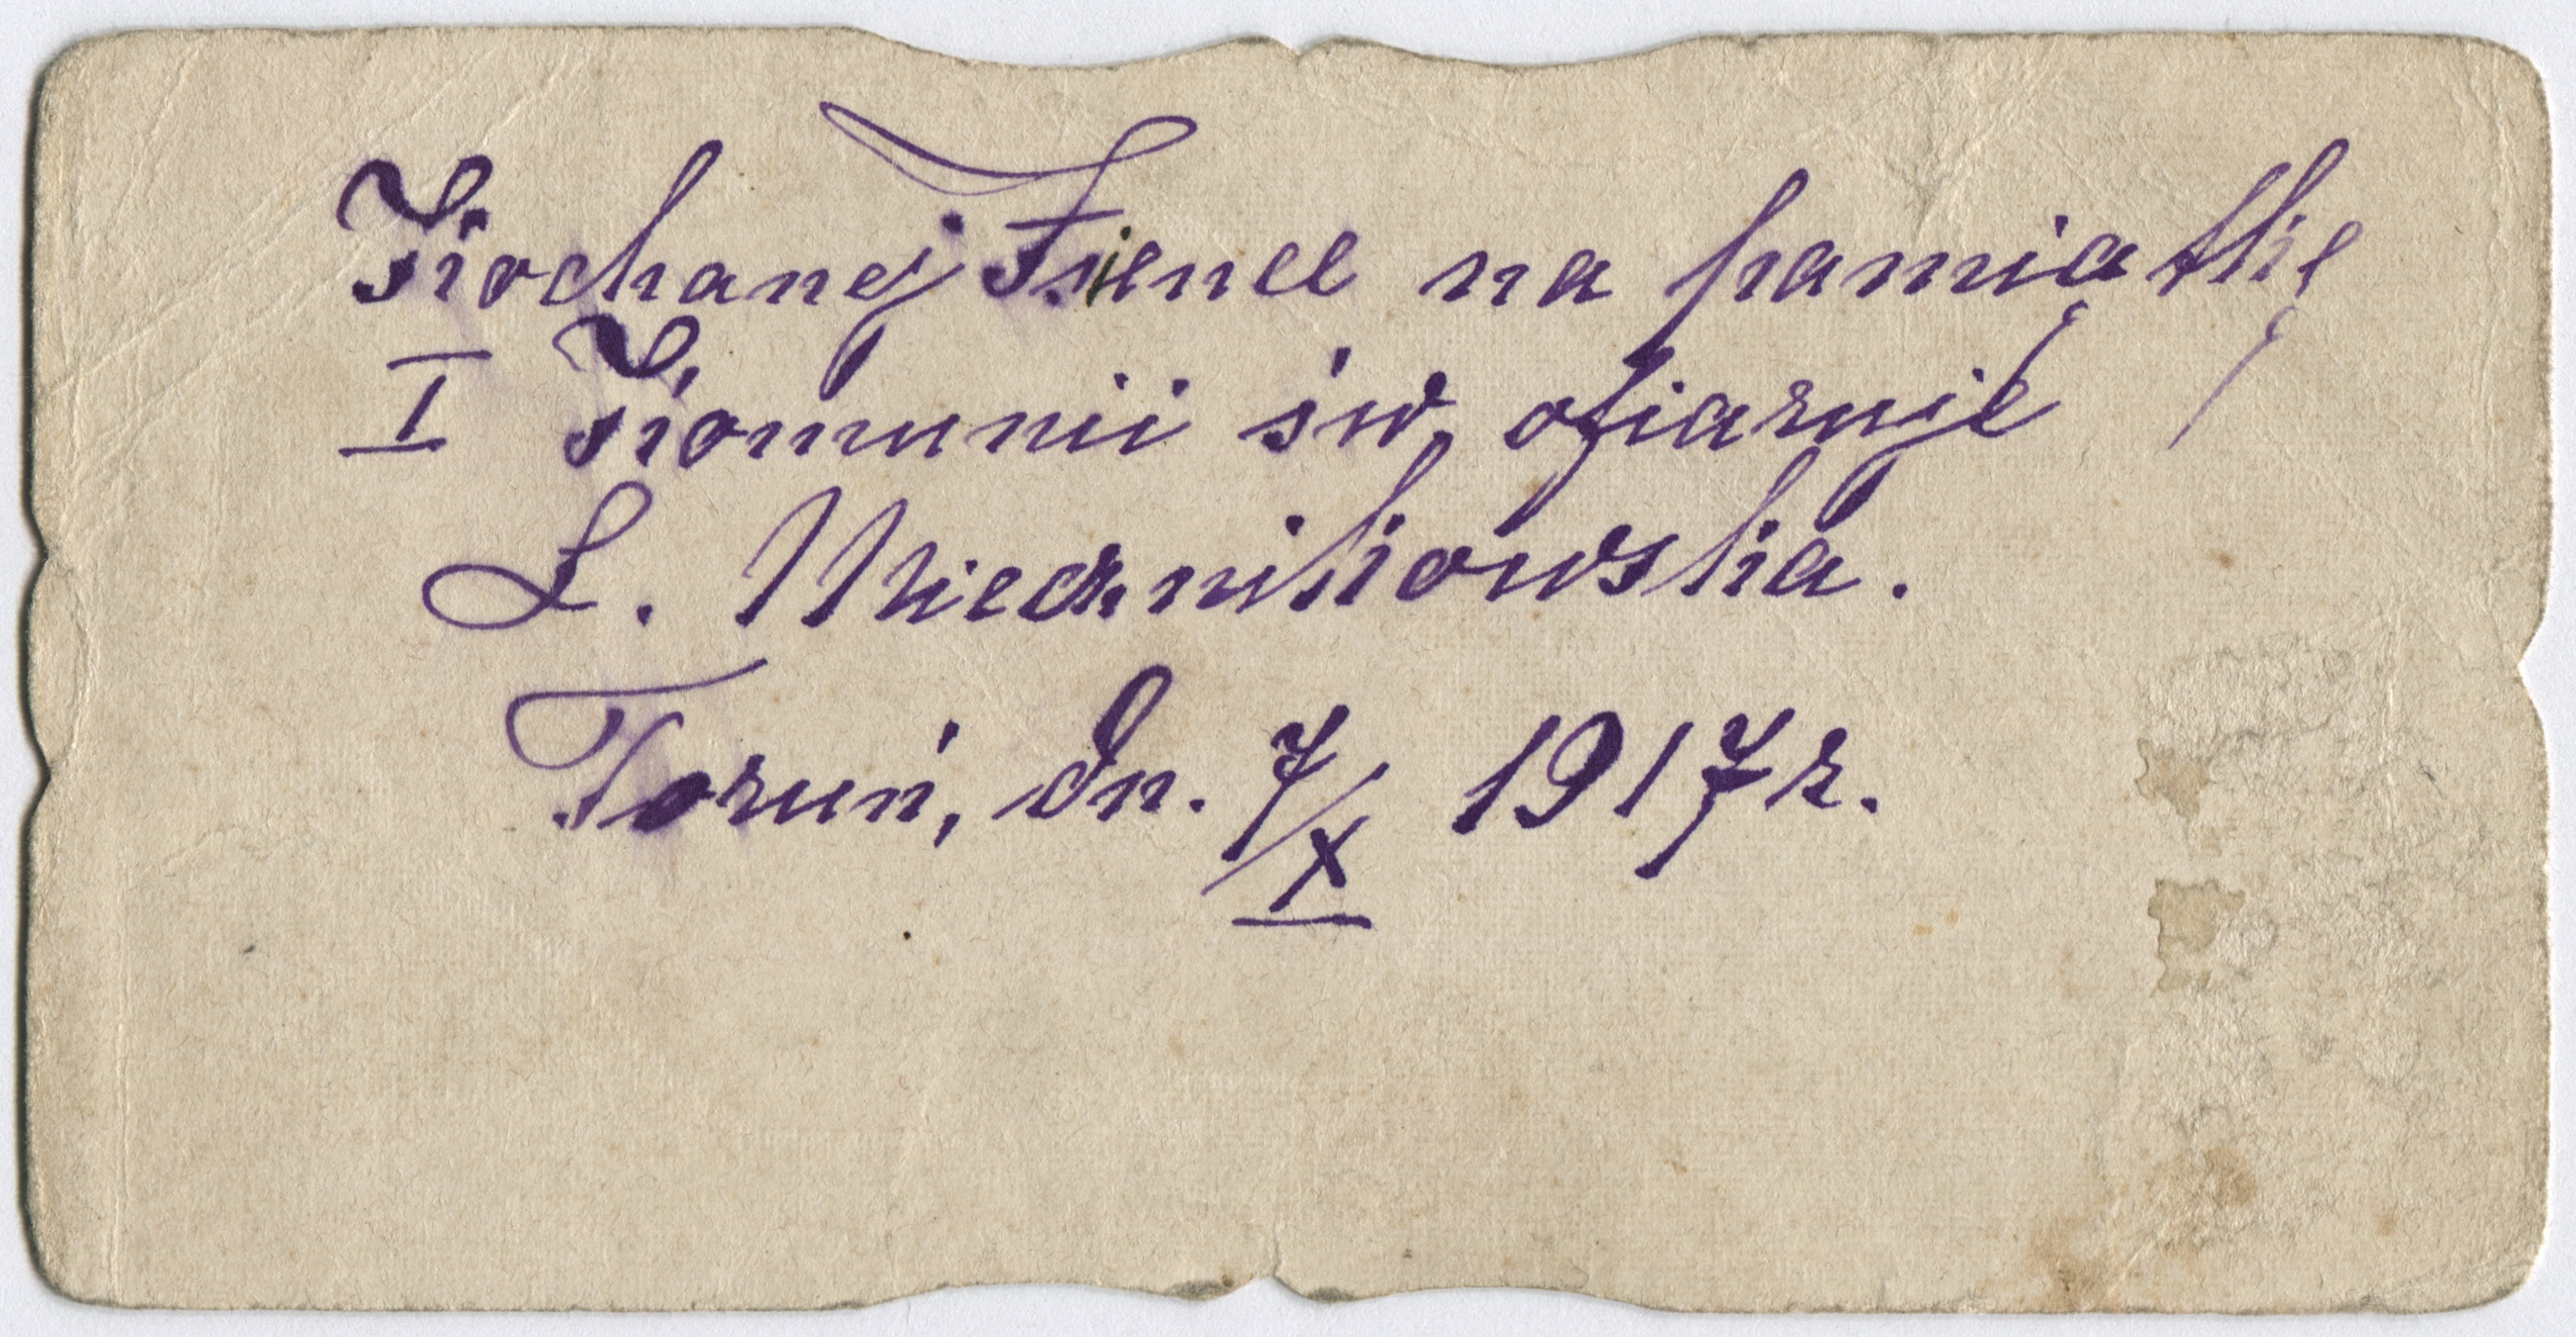 Kochanej na pamiątkę
I Komunii św. ofiaruje
L. Miecznikowska.
Toruń, dn. 7/X 1917 r.